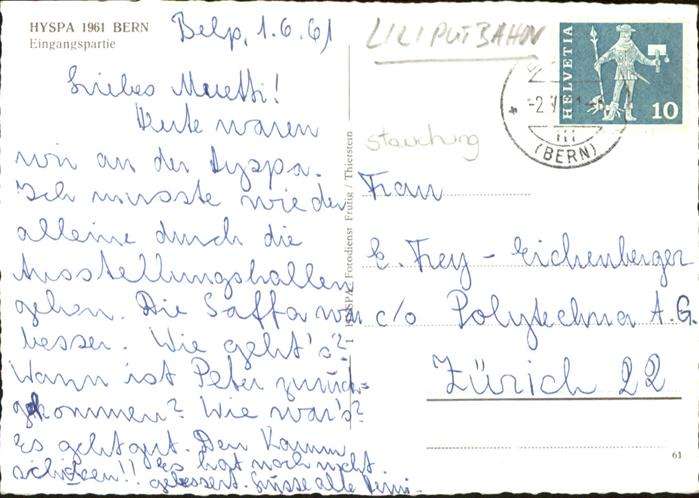 HYSPA 1961 BERN
Eingangspartie
Belp, 1.6.61
Liebes Muetti!
Heute waren
wir an der Hyspa.
Ich musste wieder
alleine durch die
Ausstellungshallen
gehen. Die Saffa war
besser. Wie geht's?
Wann ist Peter zurück=
gekommen? Wie war's?
Es geht gut. Den Kamm
schicken!! Es hat noch nicht
gebessert. Grüsse alle
HYSPA Fotodienst Frutig / Thierstein
LILIPUTBAHN
Stauchung
HELVETIA
10
(BERN)
Frau
E. Frey - Eichenberger
c/o Polytechna A.G.
Zürich 22
61